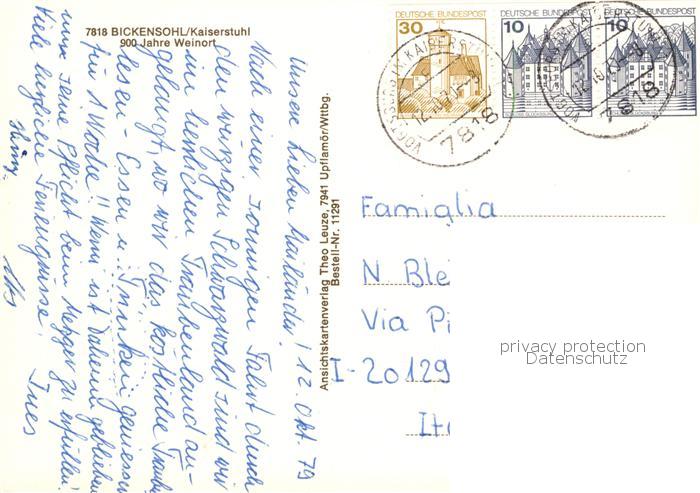 7818 BICKENSOHL/Kaiserstuhl
900 Jahre Weinort
Unsere lieben Mailänder! 12. Okt. 79
Nach einer sonnigen Fahrt durch
den würzigen Schwarzwald sind wir
im herrlichen Traubenland an-
gelangt, wo wir das köstliche Trauben-
lesen - Essen u. Trinken geniessen
für 1 Woche!! Werni ist daheim geblieben
um seine Pflicht beim Metzger zu erfüllen.
Viele herzliche Feriengrüsse!
Ines
Ansichtskartenverlag Theo Leuze, 7941 Upflamör/Wttbg.
Bestell-Nr. 11291
DEUTSCHE BUNDESPOST
30
DEUTSCHE BUNDESPOST
10
DEUTSCHE BUNDESPOST
10
7818
7818
Famiglia
N Ble
Via Pi
I-20129
It
privacy protection
Datenschutz